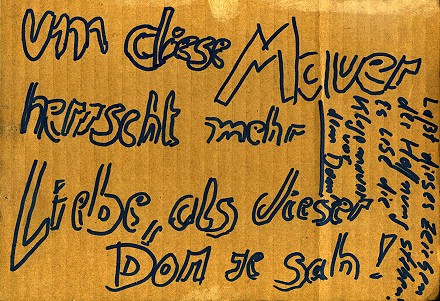 um diese Mauer
herrscht mehr
Liebe, als dieser
Dom je sah!
dieses Zeichen
der Hoffnung stehen!
Es ist die
Klagemauer
vor
dem Dom